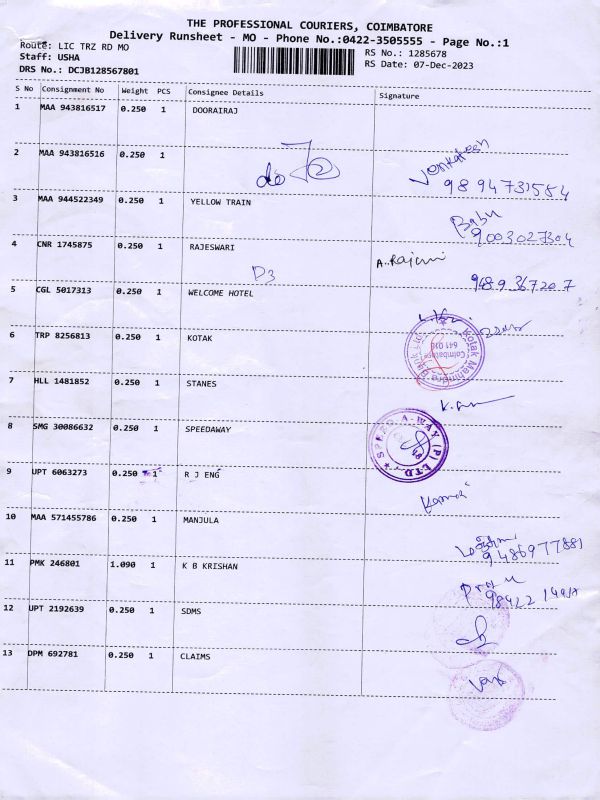 THE PROFESSIONAL COURIERS, COIMBATORE
Delivery Runsheet - MO - Phone No.:0422-3505555 - Page No.:1
Route: LIC TRZ RD MO
Staff: USHA
DRS No.: DCJB128567801
RS No.: 1285678
RS Date: 07-Dec-2023
S No Consignment No Weight PCS Consignee Details Signature
1 MAA 943816517 0.250 1 DOORAIRAJ
2 MAA 943816516 0.250 1 do
Venkatesh
9894731554
3 MAA 944522349 0.250 1 YELLOW TRAIN
Babu
9003027304
4 CNR 1745875 0.250 1 RAJESWARI
D3
A. Rajeswari
5 CGL 5017313 0.250 1 WELCOME HOTEL
9489367207
6 TRP 8256813 0.250 1 KOTAK
Kotak Mahindra Bank Ltd
Coimbatore
641 018
7 HLL 1481852 0.250 1 STANES
8 SMG 30086632 0.250 1 SPEEDAWAY
SPEED-A-WAY (P) LTD
9 UPT 6063273 0.250 1 R J ENG
10 MAA 571455786 0.250 1 MANJULA
9486977881
11 PMK 246801 1.090 1 K B KRISHAN
12 UPT 2192639 0.250 1 SDMS
13 DPM 692781 0.250 1 CLAIMS